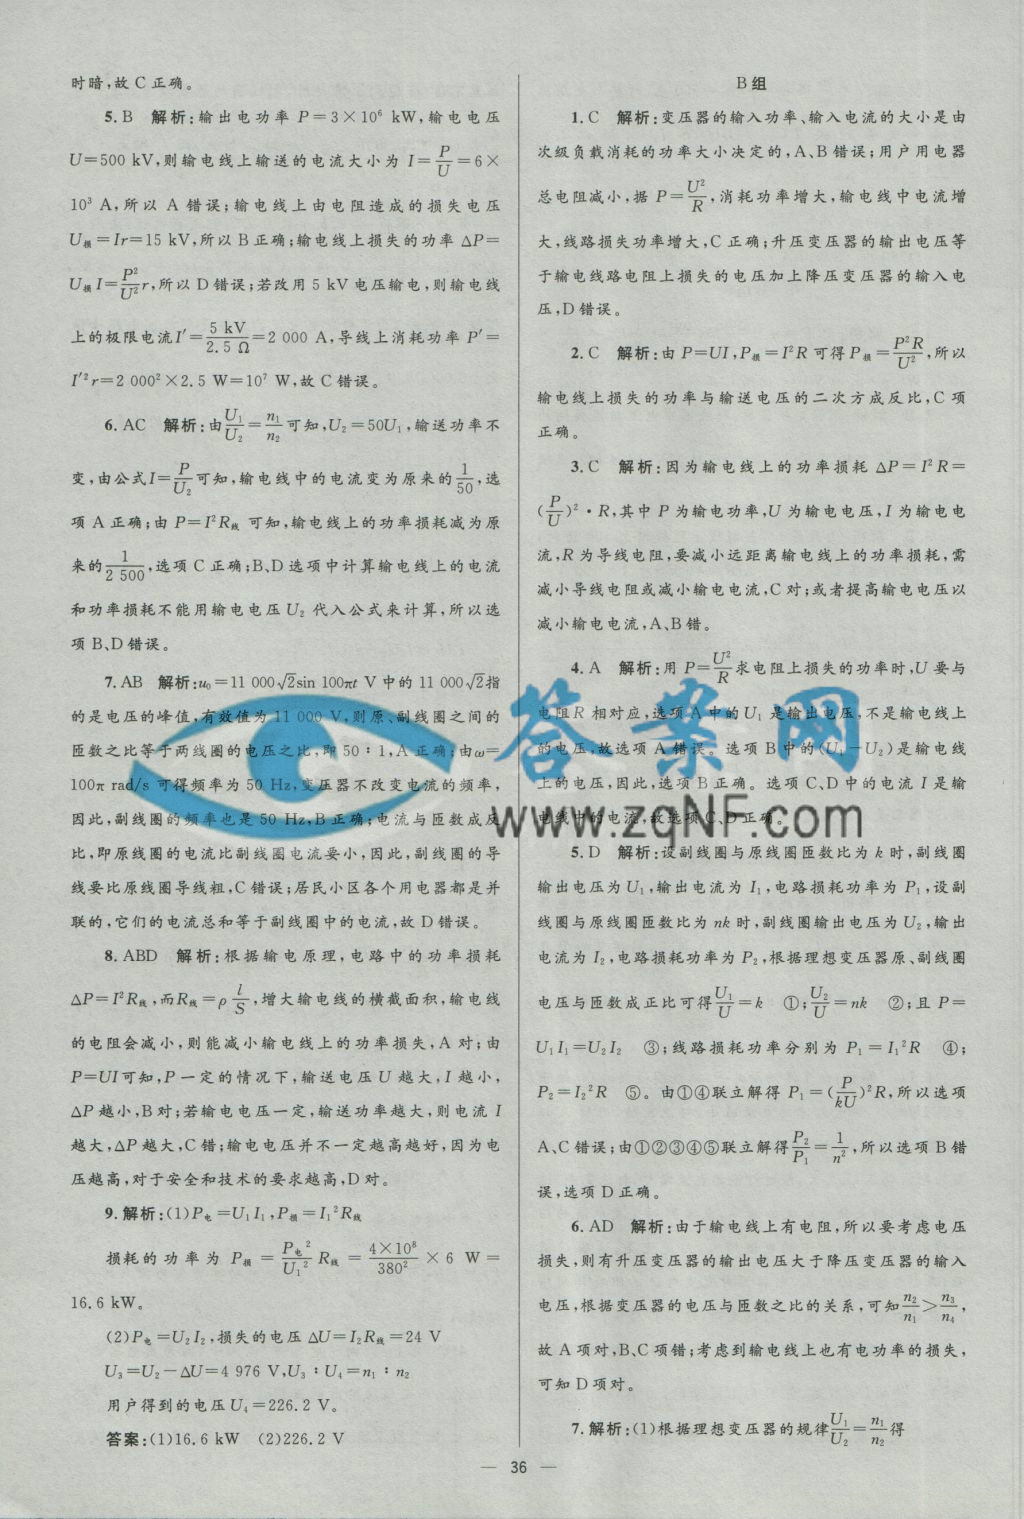 时暗,故 C 正确。
5. B 解析:输出电功率 P=3×10⁶ kW,输电电压
U=500 kV,则输电线上输送的电流大小为 I=P/U=6×
10³ A,所以 A 错误;输电线上由电阻造成的损失电压
U损=Ir=15 kV,所以 B 正确;输电线上损失的功率 ΔP=
U损I=P²/U² r,所以 D 错误;若改用 5 kV 电压输电,则输电线
上的极限电流I′=5 kV/2.5 Ω=2 000 A,导线上消耗功率 P′=
I′²r=2 000²×2.5 W=10⁷ W,故 C 错误。
6. AC 解析:由U₁/U₂=n₁/n₂可知,U₂=50U₁,输送功率不
变,由公式I=P/U₂可知,输电线中的电流变为原来的1/50,选
项 A 正确;由 P=I²R线 可知,输电线上的功率损耗减为原
来的1/2 500,选项 C 正确;B、D 选项中计算输电线上的电流
和功率损耗不能用输电电压 U₂ 代入公式来计算,所以选
项 B、D 错误。
7. AB 解析:u₀=11 000√2sin 100πt V 中的 11 000√2指
的是电压的峰值,有效值为 11 000 V,则原、副线圈之间的
匝数之比等于两线圈的电压之比,即 50∶1,A 正确;由ω=
100π rad/s 可得频率为 50 Hz,变压器不改变电流的频率,
因此,副线圈的频率也是 50 Hz,B 正确;电流与匝数成反
比,即原线圈的电流比副线圈电流要小,因此,副线圈的导
线要比原线圈导线粗,C 错误;居民小区各个用电器都是并
联的,它们的电流总和等于副线圈中的电流,故 D 错误。
8. ABD 解析:根据输电原理,电路中的功率损耗
ΔP=I²R线,而R线=ρ l/S,增大输电线的横截面积,输电线
的电阻会减小,则能减小输电线上的功率损失,A 对;由
P=UI可知,P 一定的情况下,输送电压 U 越大,I 越小,
ΔP 越小,B 对;若输电电压一定,输送功率越大,则电流 I
越大,ΔP 越大,C 错;输电电压并不一定越高越好,因为电
压越高,对于安全和技术的要求越高,D 对。
9. 解析:(1)P电=U₁I₁,P损=I₁²R线
损耗的功率为 P损=P电²/U₁² R线=4×10⁸/380²×6 W=
16.6 kW。
(2)P电=U₂I₂,损失的电压 ΔU=I₂R线=24 V
U₃=U₂−ΔU=4 976 V,U₃∶U₄=n₁∶n₂
用户得到的电压 U₄=226.2 V。
答案:(1)16.6 kW (2)226.2 V
B 组
1. C 解析:变压器的输入功率、输入电流的大小是由
次级负载消耗的功率大小决定的,A、B 错误;用户用电器
总电阻减小,据 P=U²/R,消耗功率增大,输电线中电流增
大,线路损失功率增大,C 正确;升压变压器的输出电压等
于输电线路电阻上损失的电压加上降压变压器的输入电
压,D 错误。
2. C 解析:由 P=UI,P损=I²R 可得 P损=P²R/U²,所以
输电线上损失的功率与输送电压的二次方成反比,C 项
正确。
3. C 解析:因为输电线上的功率损耗 ΔP=I²R=
(P/U)²·R,其中 P 为输电功率,U 为输电电压,I 为输电电
流,R 为导线电阻,要减小远距离输电线上的功率损耗,需
减小导线电阻或减小输电电流,C 对;或者提高输电电压以
减小输电电流,A、B 错。
4. A 解析:用 P=U²/R求电阻上损失的功率时,U 要与
电阻 R 相对应,选项 A 中的 U₁ 是输出电压,不是输电线上
的电压,故选项 A 错误。选项 B 中的(U₁−U₂)是输电线
上的电压,因此,选项 B 正确。选项 C、D 中的电流 I 是输
电线中的电流,故选项 C、D 正确。
5. D 解析:设副线圈与原线圈匝数比为 k 时,副线圈
输出电压为 U₁,输出电流为 I₁,电路损耗功率为 P₁,设副
线圈与原线圈匝数比为 nk 时,副线圈输出电压为 U₂,输出
电流为 I₂,电路损耗功率为 P₂,根据理想变压器原、副线圈
电压与匝数成正比可得U₁/U=k ①;U₂/U=nk ②;且 P=
U₁I₁=U₂I₂ ③;线路损耗功率分别为 P₁=I₁²R ④;
P₂=I₂²R ⑤。由①④联立解得 P₁=(P/kU)²R,所以选项
A、C 错误;由①②③④⑤联立解得P₂/P₁=1/n²,所以选项 B 错
误,选项 D 正确。
6. AD 解析:由于输电线上有电阻,所以要考虑电压
损失,则有升压变压器的输出电压大于降压变压器的输入
电压,根据变压器的电压与匝数之比的关系,可知n₂/n₁>n₃/n₄,
故 A 项对,B、C 项错;考虑到输电线上也有电功率的损失,
可知 D 项对。
7. 解析:(1)根据理想变压器的规律U₁/U₂=n₁/n₂得
— 36 —
答案网
www.zqNF.com